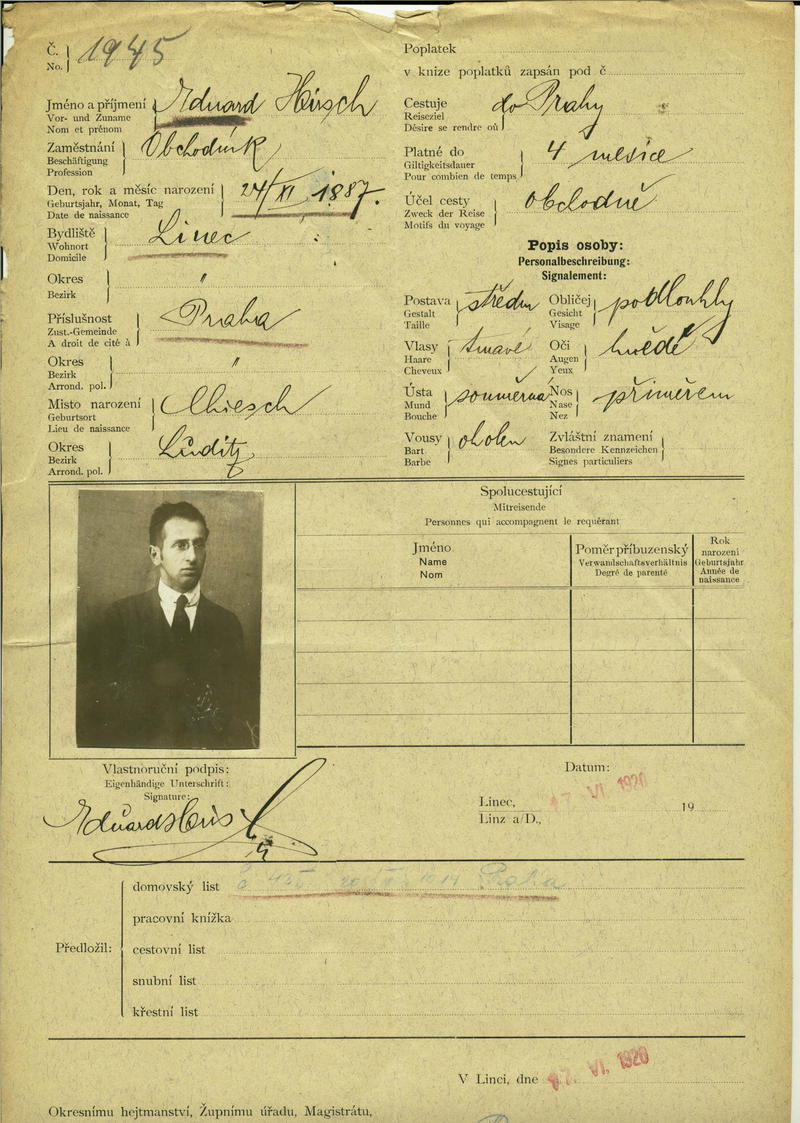 Č. 1945
No.
Jméno a příjmení Eduard Hirsch
Vor- und Zuname
Nom et prénom
Zaměstnání Obchodník
Beschäftigung
Profession
Den, rok a měsíc narození 24/XI 1887.
Geburtsjahr, Monat, Tag
Date de naissance
Bydliště Linec
Wohnort
Domicile
Okres "
Bezirk
Příslušnost Praha
Zust.-Gemeinde
A droit de cité à
Okres "
Bezirk
Arrond. pol.
Misto narození Chiesch
Geburtsort
Lieu de naissance
Okres Luditz
Bezirk
Arrond. pol.
Poplatek
v knize poplatků zapsán pod č
Cestuje do Prahy
Reiseziel
Désire se rendre où
Platné do 4 mesice
Giltigkeitsdauer
Pour combien de temps
Účel cesty obchodně
Zweck der Reise
Motifs du voyage
Popis osoby:
Personalbeschreibung:
Signalement:
Postava střední Obličej podlouhly
Gestalt Gesicht
Taille Visage
Vlasy tmavé Oči hnědé
Haare Augen
Cheveux Yeux
Ústa souměrná Nos přiměřen
Mund Nase
Bouche Nez
Vousy oholen Zvláštní znamení
Bart Besondere Kennzeichen
Barbe Signes particuliers
Spolucestující
Mitreisende
Personnes qui accompagnent le requérant
Jméno Poměr příbuzenský Rok narozeni
Name Verwandschaftsverhältnis Geburtsjahr
Nom Degré de parenté Année de naissance
Vlastnoruční podpis:
Eigenhändige Unterschrift:
Signature:
Eduard Hirsch
Datum:
Linec, 17 VI 1920 19
Linz a/D.,
Předložil:
domovský list č 1914 Praha
pracovní knížka
cestovní list
snubní list
křestní list
V Linci, dne 17. VI. 1920
Okresnímu hejtmanství, Župnímu úřadu, Magistrátu,